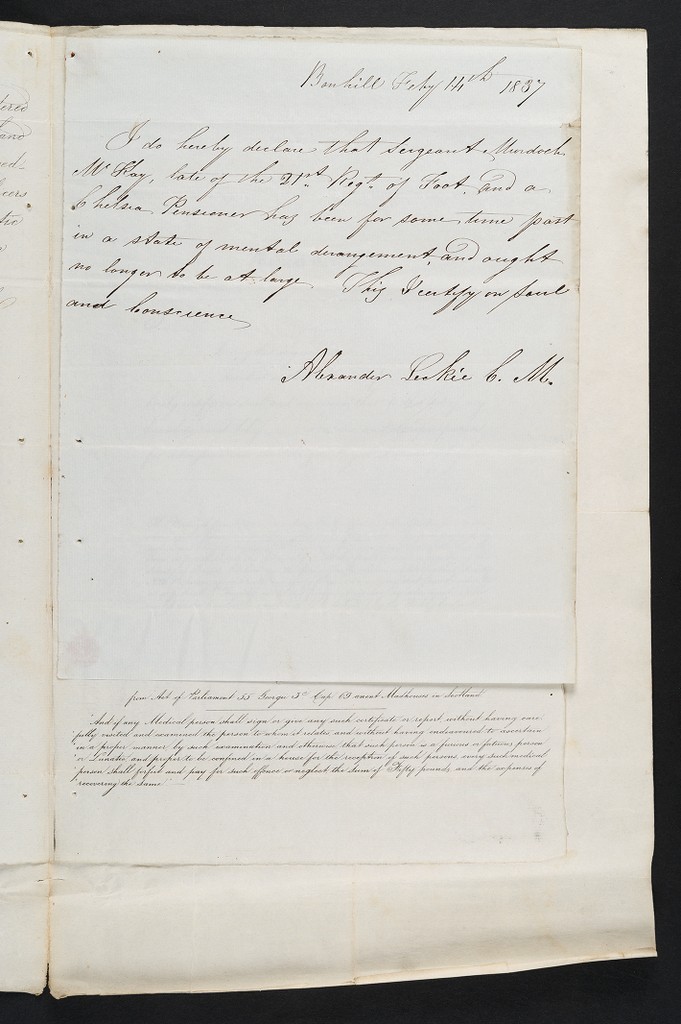 Bonhill Feby 14th 1837
I do hereby declare that Sergeant Murdoch
McKay, late of the 21st Regt. of Foot, and a
Chelsea Pensioner has been for some time past
in a state of mental derangement, and ought
no longer to be at large This I certify on Soul
and Conscience
Alexander Leckie C. M.
from Act of Parliament 55 George 3d Cap 69 anent Madhouses in Scotland
"And if any Medical person shall sign or give any such certificate or report without having care-
"fully visited and examined the person to whom it relates and without having endeavoured to ascertain
"in a proper manner by such examination and otherwise, that such person is a furious or fatuous person
"or Lunatic and proper to be confined in a house for the reception of such persons every such medical
"person shall forfeit and pay for such offence or neglect the Sum of Fifty pounds, and the expenses of
"recovering the same" —